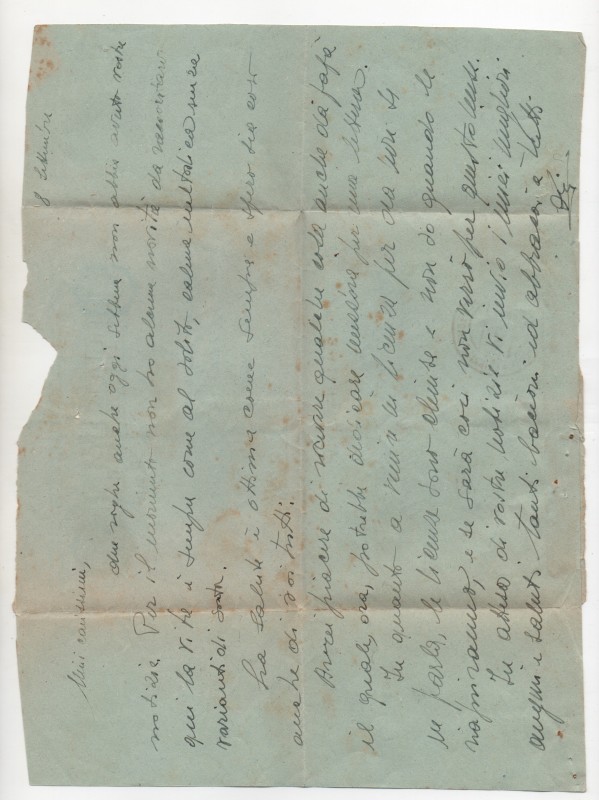 8 Settembre
Miei carissimi,
due righe anche oggi sebbene non abbia avuto vostre
notizie. Per il momento non ho alcuna novità da raccontarvi
qui la vita è sempre come al solito, calma e statica senza
varianti di sorta.
La salute è ottima come sempre e spero sia così
anche di voi tutti.
Avrei piacere di ricevere qualche cosa anche da papà
il quale, ora, potrebbe dedicare mezz'ora per una lettera.
In quanto a venire in licenza per ora non se
ne parla, le licenze sono chiuse e non so quando le
riapriranno, e se sarà così non verrò per questo mese.
In attesa di vostre notizie vi invio i miei migliori
auguri e saluti, tanti bacioni ed abbracci a tutti.